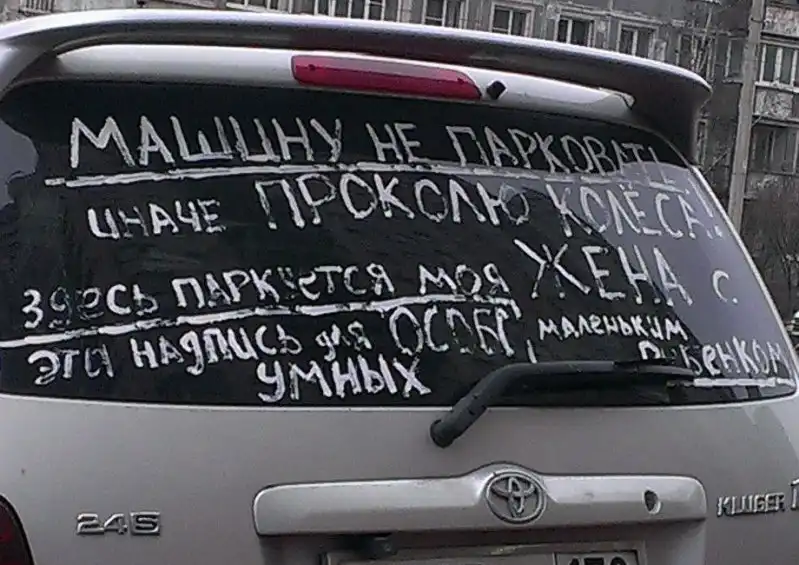 МАШИНУ НЕ ПАРКОВАТЬ!
ИНАЧЕ ПРОКОЛЮ КОЛЁСА!
ЗДЕСЬ ПАРКУЕТСЯ МОЯ ЖЕНА С
МАЛЕНЬКИМ
РЕБЕНКОМ
ЭТИ НАДПИСЬ ДЛЯ ОСОБЫ
УМНЫХ
2.4S
KLUGER